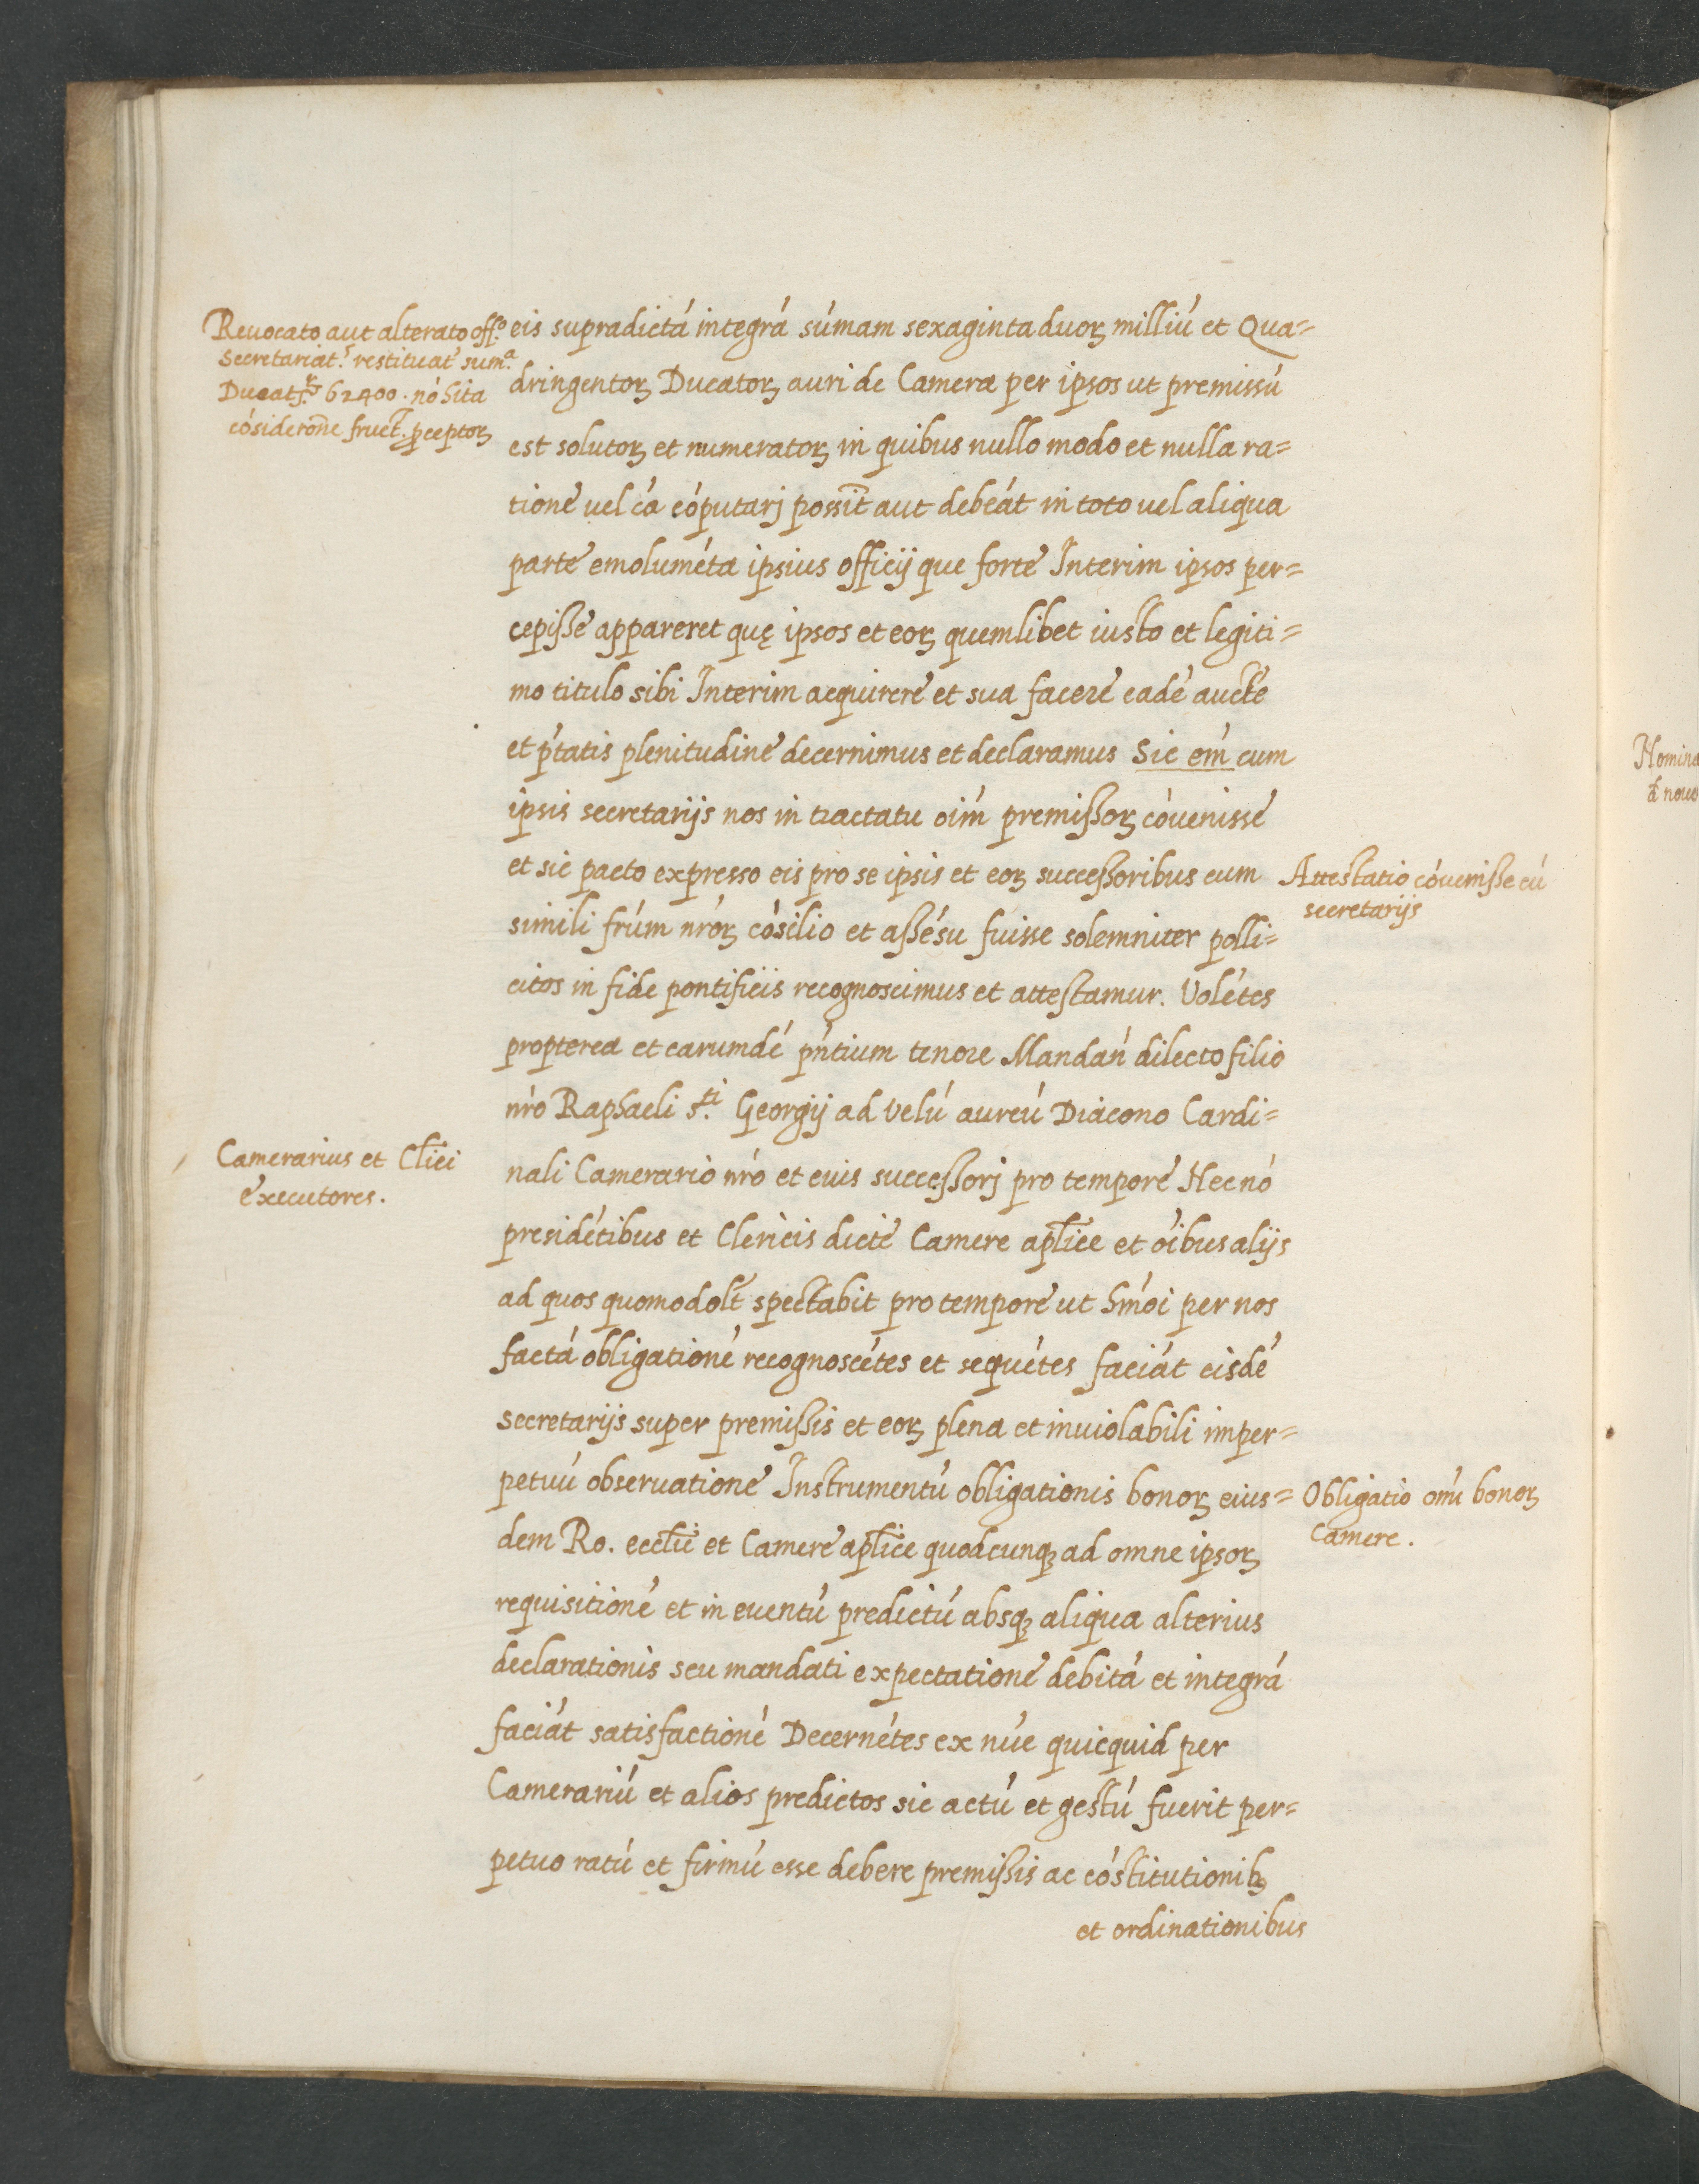 Reuocato aut alterato off.º
Secretariat.s restituat sum.ª
Ducatoꝝ 62400 · nó hita
cósideróne fruct. ꝑceptoꝝ
eis supradictá integrá súmam sexagintaduoꝝ milliú et Qua=
dringentoꝝ Ducatoꝝ auri de Camera per ipsos ut premissú
est solutoꝝ et numeratoꝝ in quibus nullo modo et nulla ra=
tione vel cá cóputarj possīt aut debeát in toto vel aliqua
parte emoluméta ipsius officij que forte Interim ipsos per=
cepisse appareret quę ipsos et eoꝝ quemlibet iusto et legiti=
mo titulo sibi Interim acquirere et sua facere eadé aucte
et ptátis plenitudine decernimus et declaramus Sic em̃ cum
ipsis secretarijs nos in tractatu oim̃ premissoꝝ cóuenisse
et sic pacto expresso eis pro se ipsis et eoꝝ successoribus cum
simili frúm nŕoꝝ cósilio et assésu fuisse solemniter polli=
citos in fide pontificis recognoscimus et attestamur. Volétes
propterea et earumdé pńtium tenore Mandań dilecto filio
nŕo Raphaeli s.ti Georgij ad velú aureú Diacono Cardi=
nali Camerario nŕo et eius successorj pro tempore Necnó
presidétibus et Clericis dicte Camere aplīce et oībus alijs
ad quos quomodolt̄ spectabit pro tempore ut hmói per nos
factá obligationé recognoscétes et sequétes faciát eisdé
secretarijs super premissis et eoꝝ plena et inuiolabili imper=
petuú obseruatione Instrumentú obligationis bonoꝝ eius=
dem Ro. eccliē et Camere aplīce quodcunqꝫ ad omne ipsoꝝ
requisitioné et in euentú predictú absqꝫ aliqua alterius
declarationis seu mandati expectatione debitá et integrá
faciát satisfactioné Decernétes ex núc quicquid per
Camerariú et alios predictos sic actú et gestú fuerit per=
petuo ratú et firmú esse debere premissis ac cóstitutionibꝫ
et ordinationibus
Attestatio cóuenisse cú
secretarijs
Camerarius et Clīci
executores.
Obligatio oḿu bonoꝝ
Camere.
Homina
d nouo